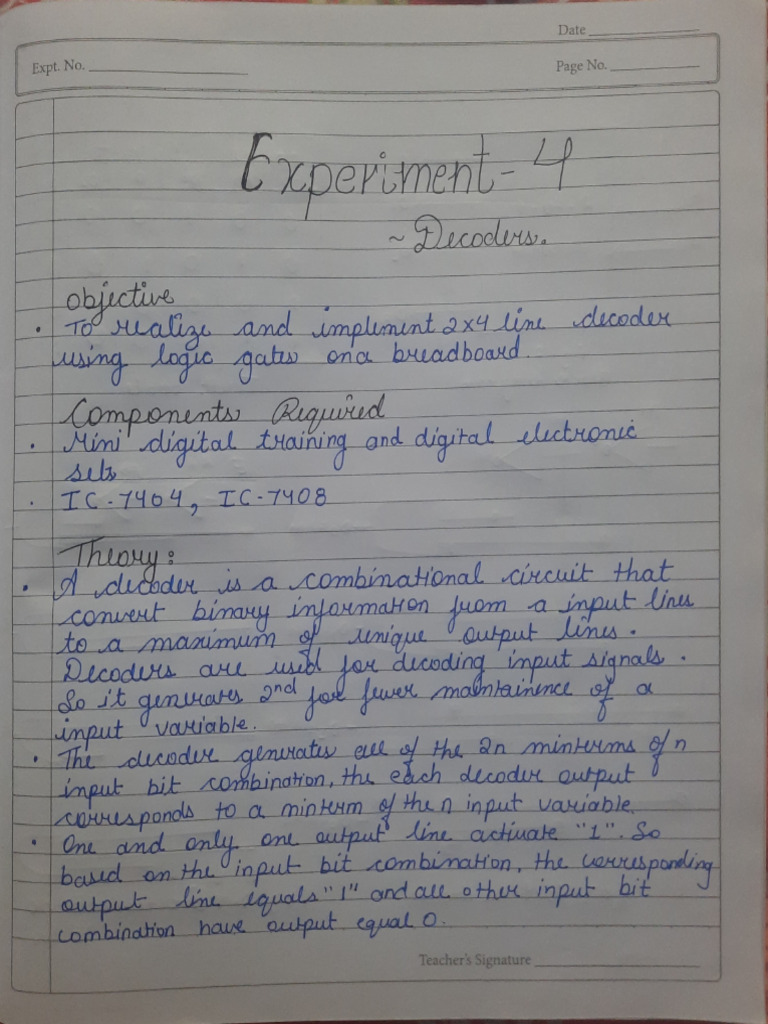 Date
Expt. No.
Page No.
Experiment - 4
~ Decoders.
objective
• To realize and implement 2x4 line decoder
using logic gates on a breadboard.
Components Required
• Mini digital training and digital electronic
sets
• IC-7404, IC-7408
Theory:
• A decoder is a combinational circuit that
convert binary information from a input lines
to a maximum of unique output lines.
Decoders are used for decoding input signals.
So it generates 2nd for fewer maintainence of a
input variable.
• The decoder generates all of the 2n minterms of n
input bit combination, the each decoder output
corresponds to a minterm of the n input variable.
• One and only one output line activate "1". So
based on the input bit combination, the corresponding
output line equals "1" and all other input bit
combination have output equal 0.
Teacher's Signature